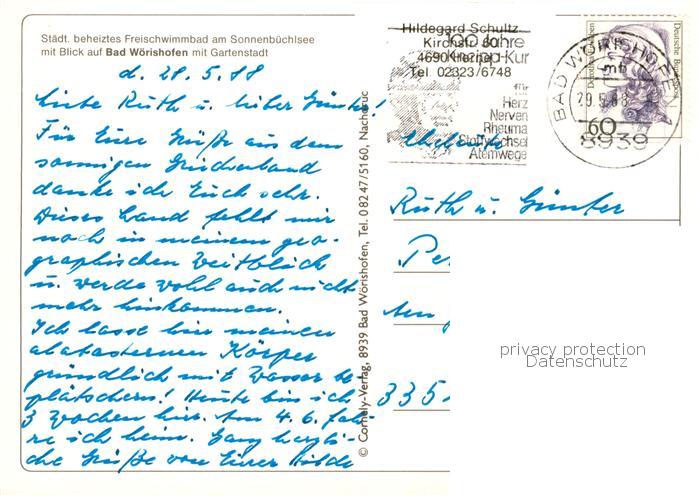 Städt. beheiztes Freischwimmbad am Sonnenbüchlsee
mit Blick auf Bad Wörishofen mit Gartenstadt
d. 28.5.88
Liebe Ruth u. lieber Günter!
Für Eure Grüße aus dem
sonnigen Griechenland
danke ich Euch sehr.
Dieses Land fehlt mir
noch in meinem geo-
graphischen Weitblick
u. werde wohl auch nicht
mehr hinkommen.
Ich lasse hier meinen
alabasternen Körper
gründlich mit Wasser be-
plätschern! Heute bin ich
3 Wochen hier. Am 4.6. fah-
re ich heim. Ganz herzli-
che Grüße von Eurer Hilde
© Cornely-Verlag, 8939 Bad Wörishofen, Tel. 082 47/5160, Nachdruc
Hildegard Schultz
Kirchstr. 60
4690 Herne
Tel. 02323/6748
100 Jahre
Kneipp-Kur
für
Herz
Nerven
Rheuma
Stoffwechsel
Atemwege
BAD WÖRISHOFEN
29.5.88
8939
Deutsche Bundespost
60
Eheleute
Ruth u. Günter
Pe
Am
335
privacy protection
Datenschutz